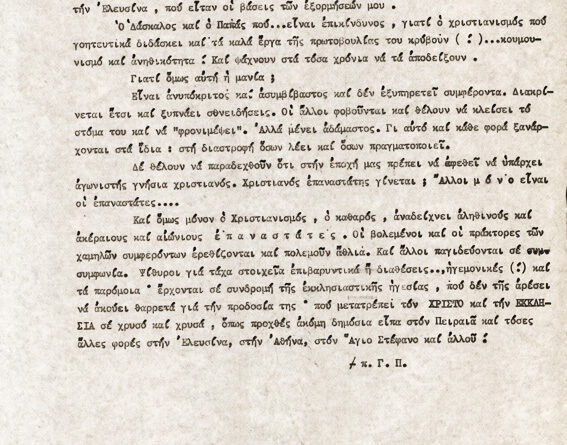 τήν Ἐλευσίνα , πού εἶταν οἱ βάσεις τῶν ἐξορμήσεών μου .
Ὁ Δάσκαλος καί ὁ Παπάς πού...εἶναι ἐπικίνδυνος , γιατί ὁ χριστιανισμός πού
γοητευτικά διδάσκει καί τά καλά ἔργα τῆς πρωτοβουλίας του κρύβουν (!)...κουμου-
νισμό καί ἀνηθικότητα ! Καί ψάχνουν στά τόσα χρόνια νά τά ἀποδείξουν .
Γιατί ὅμως αὐτή ἡ μανία ;
Εἶναι ἀνυπόκριτος καί ἀσυμβίβαστος καί δέν ἐξυπηρετεῖ συμφέροντα. Διακρί-
νεται ἔτσι καί ξυπνάει συνειδήσεις. Οἱ ἄλλοι φοβοῦνται καί θέλουν νά κλείσει τό
στόμα του καί νά "φρονιμέψει". Ἀλλά μένει ἀδάμαστος. Γι αὐτό καί κάθε φορά ξανάρ-
χονται στά ἴδια : στή διαστροφή ὅσων λέει καί ὅσων πραγματοποιεῖ.
Δέ θέλουν νά παραδεχθοῦν ὅτι στήν ἐποχή μας πρέπει νά ἀφεθεῖ νά ὑπάρχει
ἀγωνιστής γνήσια χριστιανός. Χριστιανός ἐπαναστάτης γίνεται ; Ἄλλοι μ ό ν ο εἶναι
οἱ ἐπαναστάτες....
Καί ὅμως μόνον ὁ Χριστιανισμός , ὁ καθαρός , ἀναδείχνει ἀληθινούς καί
ἀκέραιους καί αἰώνιους ἐ π α ν α σ τ ά τ ε ς . Οἱ βολεμένοι καί οἱ πράκτορες τῶν
χαμηλῶν συμφερόντων ἐρεθίζονται καί πολεμοῦν ἄθλιά. Καί ἄλλοι παγιδεύονται σέ
συμφωνία. Ψίθυροι γιά τάχα στοιχεῖα ἐπιβαρυντικά ἤ διαθέσεις...ἡγεμονικές (!) καί
τά παρόμοια · ἔρχονται σέ συνδρομή τῆς ἐκκλησιαστικῆς ἡγεσίας , πού δέν τῆς ἀρέσει
νά ἀκούει θαρρετά γιά τήν προδοσία της · πού μετατρέπει τόν ΧΡΙΣΤΟ καί τήν ΕΚΚΛΗ-
ΣΙΑ σέ χρυσό καί χρυσά , ὅπως προχθές ἀκόμη δημόσια εἶπα στόν Πειραιᾶ καί τόσες
ἄλλες φορές στήν Ἐλευσίνα, στήν Ἀθήνα, στόν Ἅγιο Στέφανο καί ἀλλοῦ !
π. Γ. Π.